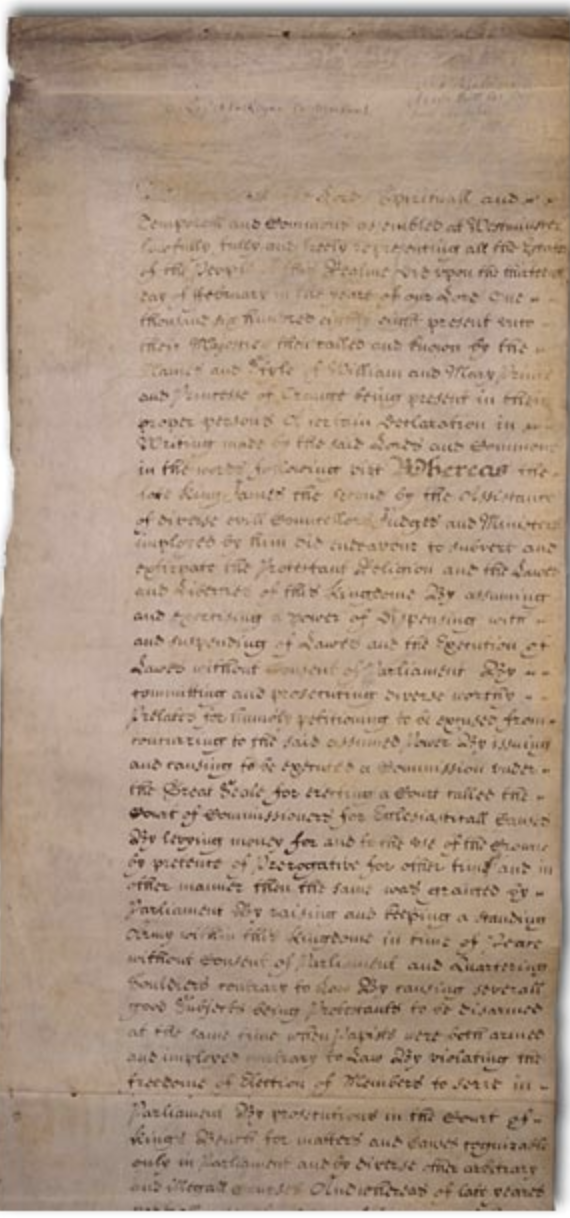 the Lords Spirituall and
Temporall and Commons assembled at Westminster
lawfully fully and freely representing all the Estates
of the People this Realme did upon the thirteenth
day of February in the yeare of our Lord One
thousand six hundred eighty eight present unto
their Majesties then called and known by the
Names and Style of William and Mary Prince
and Princesse of Orange being present in their
proper persons A certain Declaration in
Writing made by the said Lords and Commons
in the words following vizt Whereas the
late King James the second by the Assistance
of diverse evill Councellors Judges and Ministers
imployed by him did endeavour to subvert and
extirpate the Protestant Religion and the Lawes
and Liberties of this Kingdome By assuming
and exercising a power of Dispensing with
and suspending of Lawes and the Execution of
Lawes without Consent of Parliament By
committing and prosecuting diverse worthy
Prelates for humbly petitioning to be excused from
concurring to the said assumed Power By issuing
and causing to be executed a Commission under
the Great Seale for erecting a Court called the
Court of Commissioners for Ecclesiasticall Causes
By levying money for and to the use of the Crowne
by pretence of Prerogative for other time and in
other manner then the same was granted by
Parliament By raising and keeping a standing
Army within this Kingdome in time of Peace
without Consent of Parliament and Quartering
Souldiers contrary to Law By causing severall
good Subjects being Protestants to be disarmed
at the same time when Papists were both armed
and imployed contrary to Law By violating the
freedome of Election of Members to serve in
Parliament By prosecutions in the Court of
Kings Bench for matters and causes cognizable
only in Parliament and by diverse other arbitrary
and illegall courses And whereas of late yeares